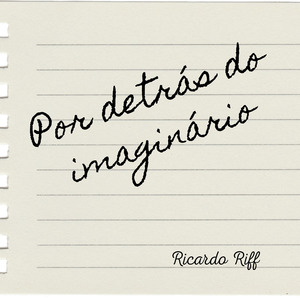 Por detrás do
imaginário
Ricardo Riff